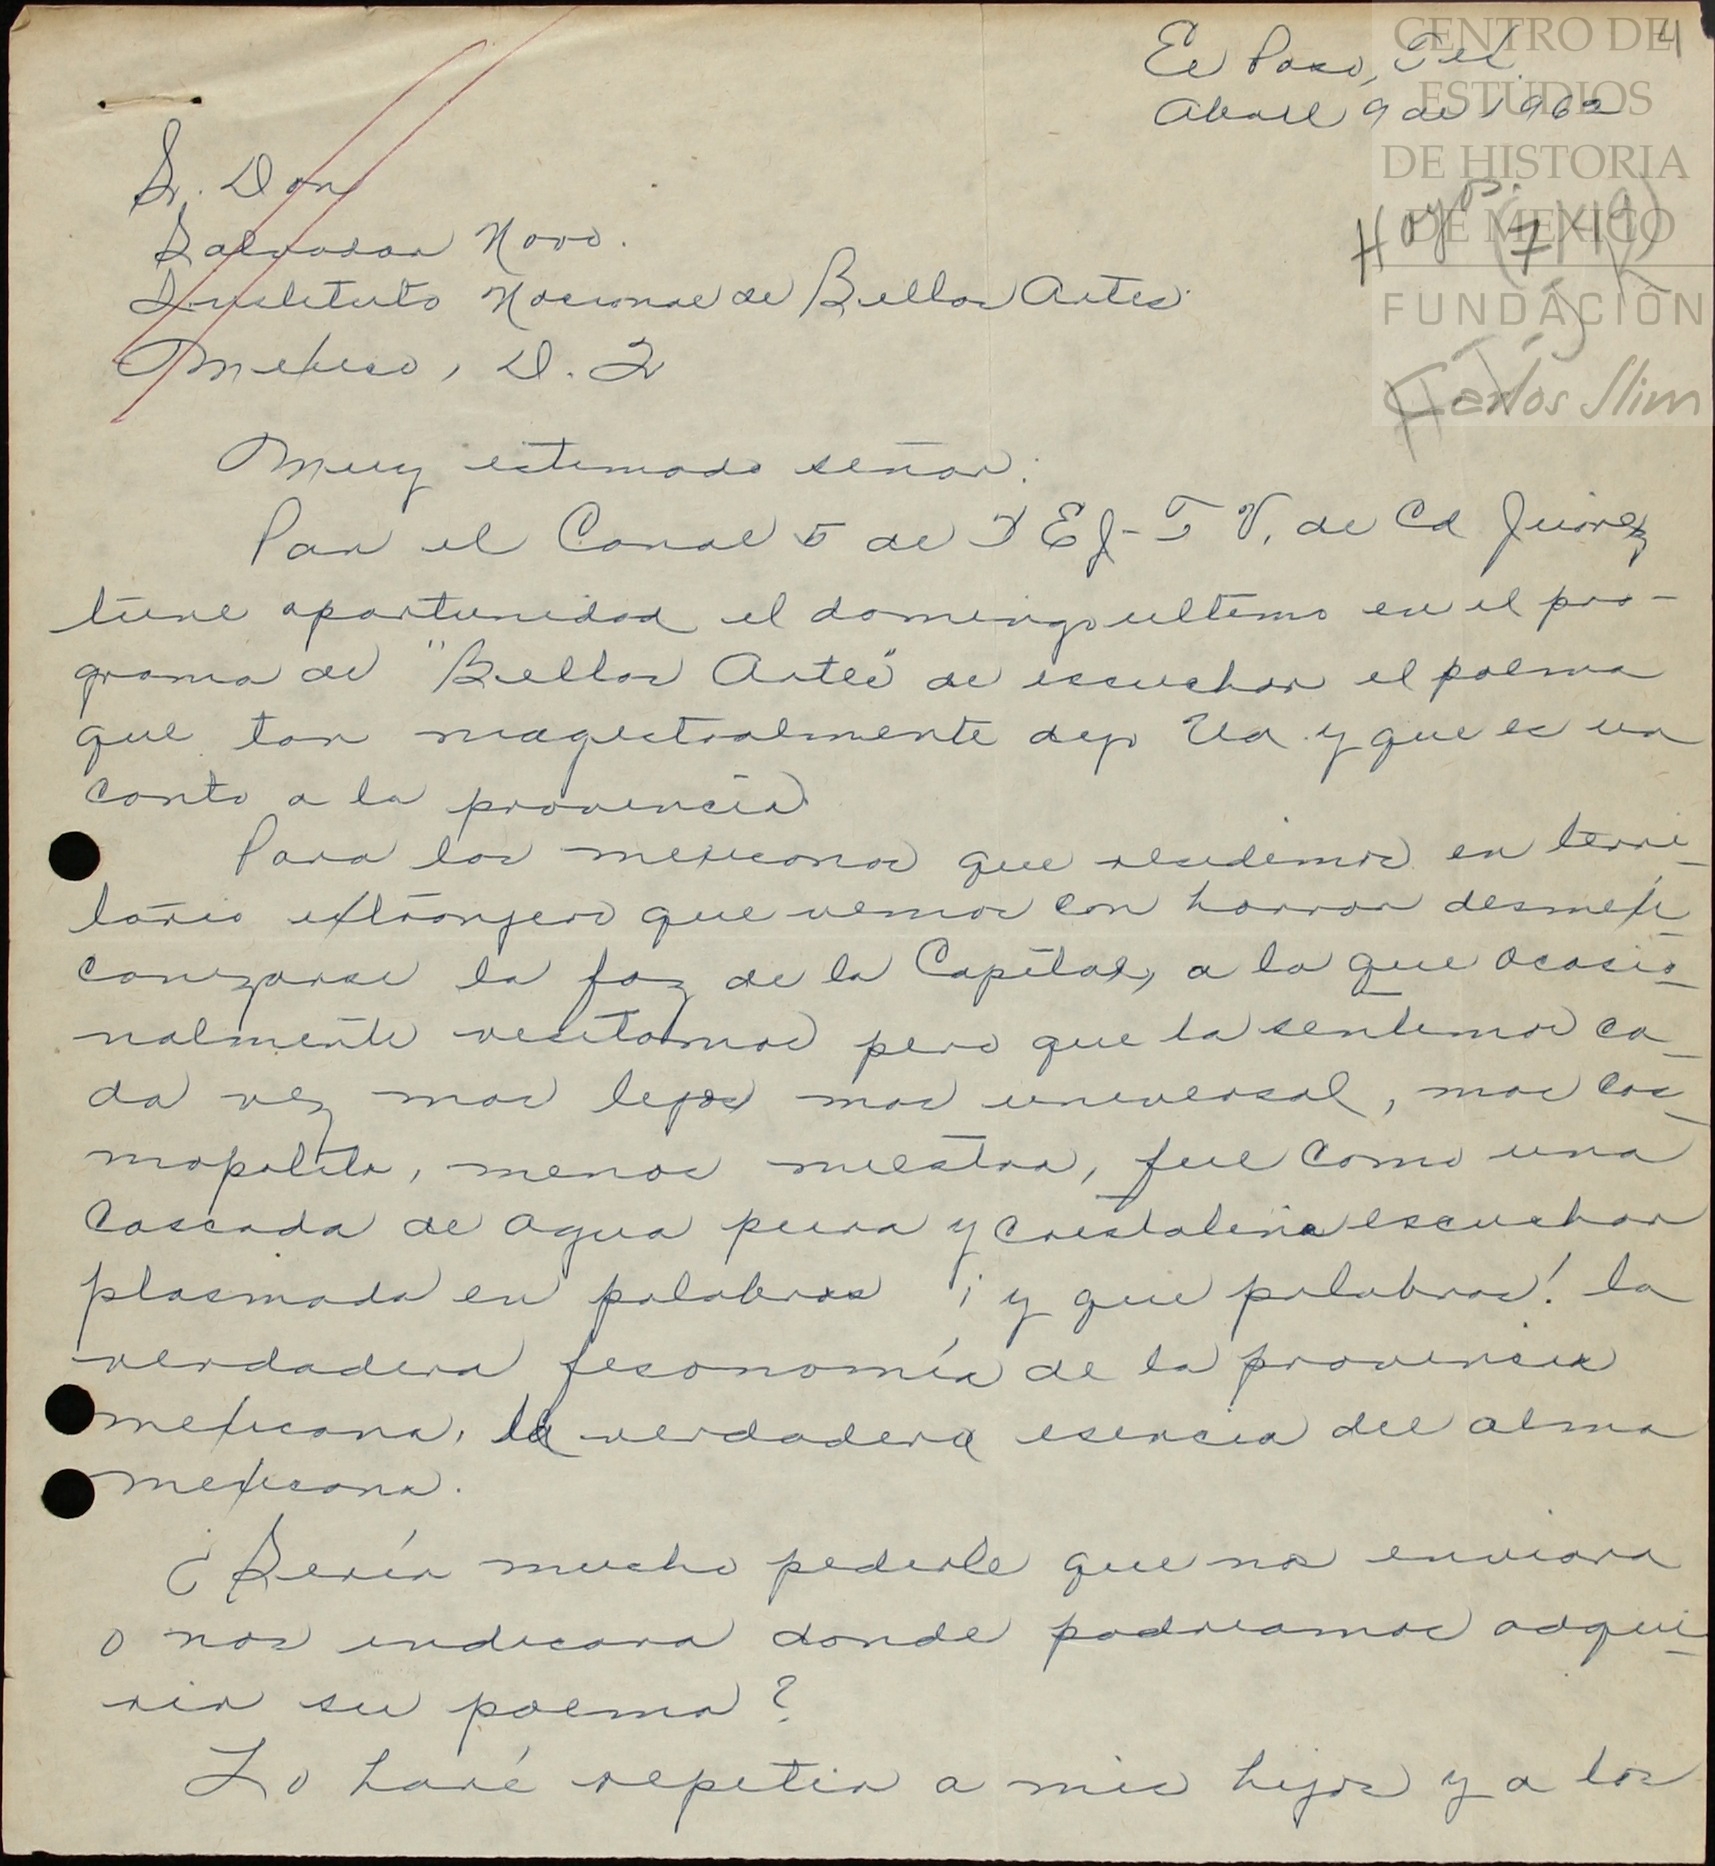 El Paso, Tex.
4
Abril 9 de 1962
CENTRO DE
ESTUDIOS
DE HISTORIA
DE MEXICO
FUNDACION
Carlos Slim
Sr. Don
Salvador Novo.
Instituto Nacional de Bellas Artes.
Mexico, D. F
Muy estimado señor:
Por el Canal 5 de XEJ-TV. de Cd Juárez
tuve oportunidad el domingo ultimo en el pro-
grama de "Bellas Artes" de escuchar el poema
que tan magistralmente dijo Ud. y que es un
canto a la provincia
Para los mexicanos que residimos en terri-
torio extranjero que vemos con horror desmexi-
canizarse la faz de la Capital, a la que ocasio-
nalmente visitamos pero que la sentimos ca-
da vez mas lejos mas universal, mas cos-
mopolita, menos nuestra, fue como una
cascada de agua pura y cristalina escuchar
plasmada en palabras ¡y que palabras! la
verdadera fisonomía de la provincia
mexicana, la verdadera esencia del alma
mexicana.
¿Sería mucho pedirle que nos enviara
o nos indicara donde podriamos adqui-
rir su poema?
Lo haré repetir a mis hijos y a los